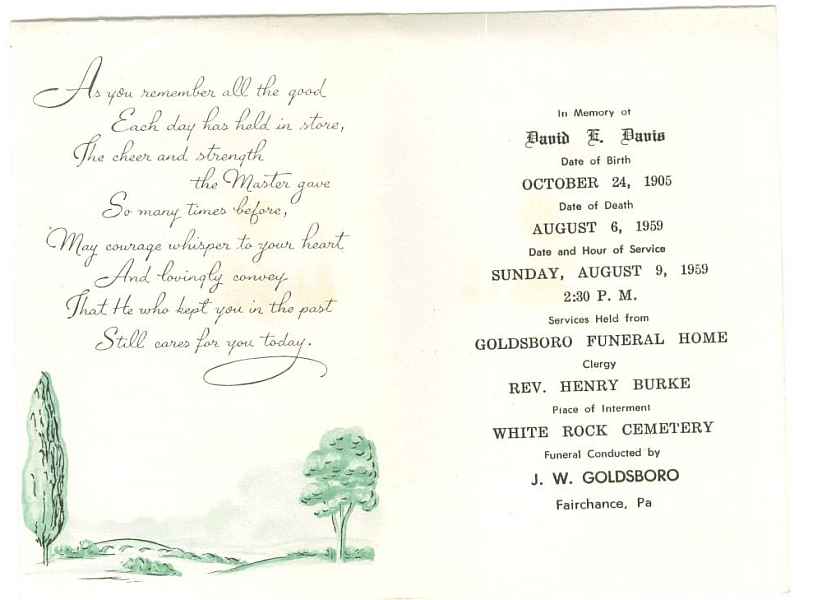 As you remember all the good
Each day has held in store,
The cheer and strength
the Master gave
So many times before,
May courage whisper to your heart
And lovingly convey
That He who kept you in the past
Still cares for you today.
In Memory of
David E. Davis
Date of Birth
OCTOBER 24, 1905
Date of Death
AUGUST 6, 1959
Date and Hour of Service
SUNDAY, AUGUST 9, 1959
2:30 P. M.
Services Held from
GOLDSBORO FUNERAL HOME
Clergy
REV. HENRY BURKE
Place of Interment
WHITE ROCK CEMETERY
Funeral Conducted by
J. W. GOLDSBORO
Fairchance, Pa